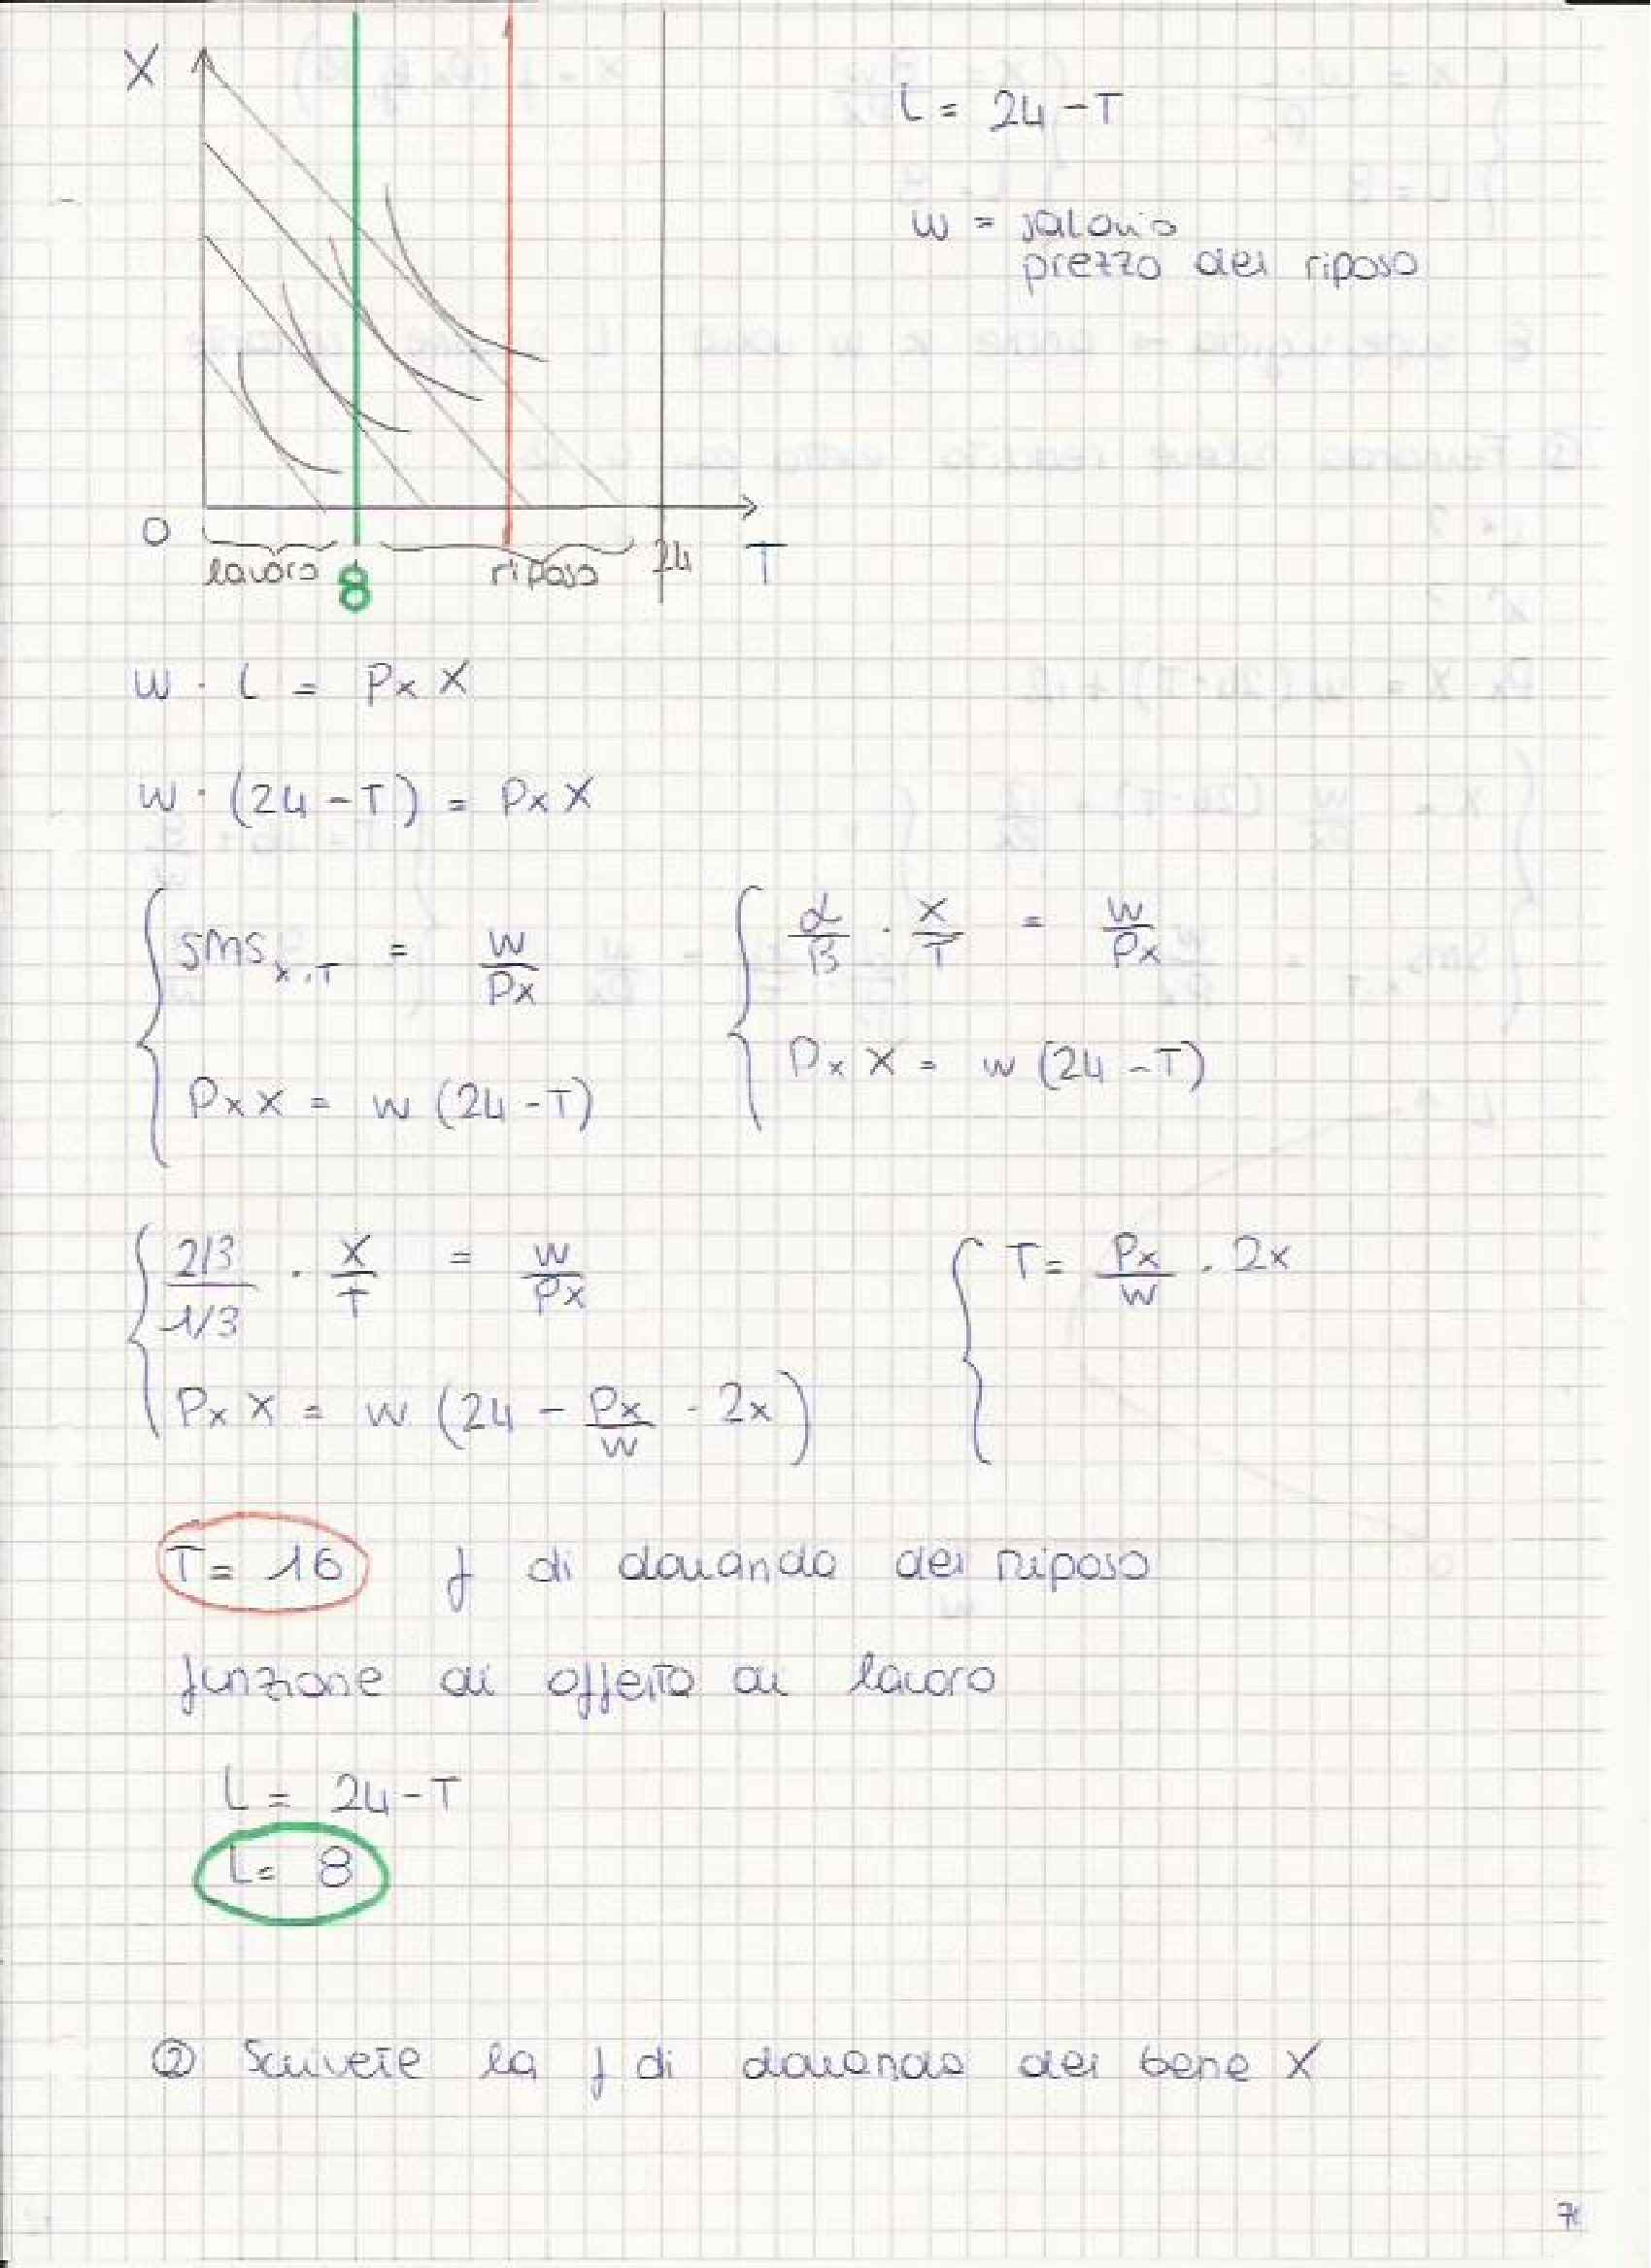 X
L = 24 - T
w = salario
prezzo del riposo
O
lavoro 8 riposo 24 T
w · L = Px X
w · (24 - T) = Px X
{ SMS x,T = w/Px
Px X = w (24 - T)
{ α/β · X/T = w/Px
Px X = w (24 - T)
{ 2/3 / 1/3 · X/T = w/Px
Px X = w (24 - Px/w · 2x)
{ T = Px/w · 2x
T = 16 f di domanda del riposo
funzione di offerta di lavoro
L = 24 - T
L = 8
② Scrivete la f di domanda del bene X